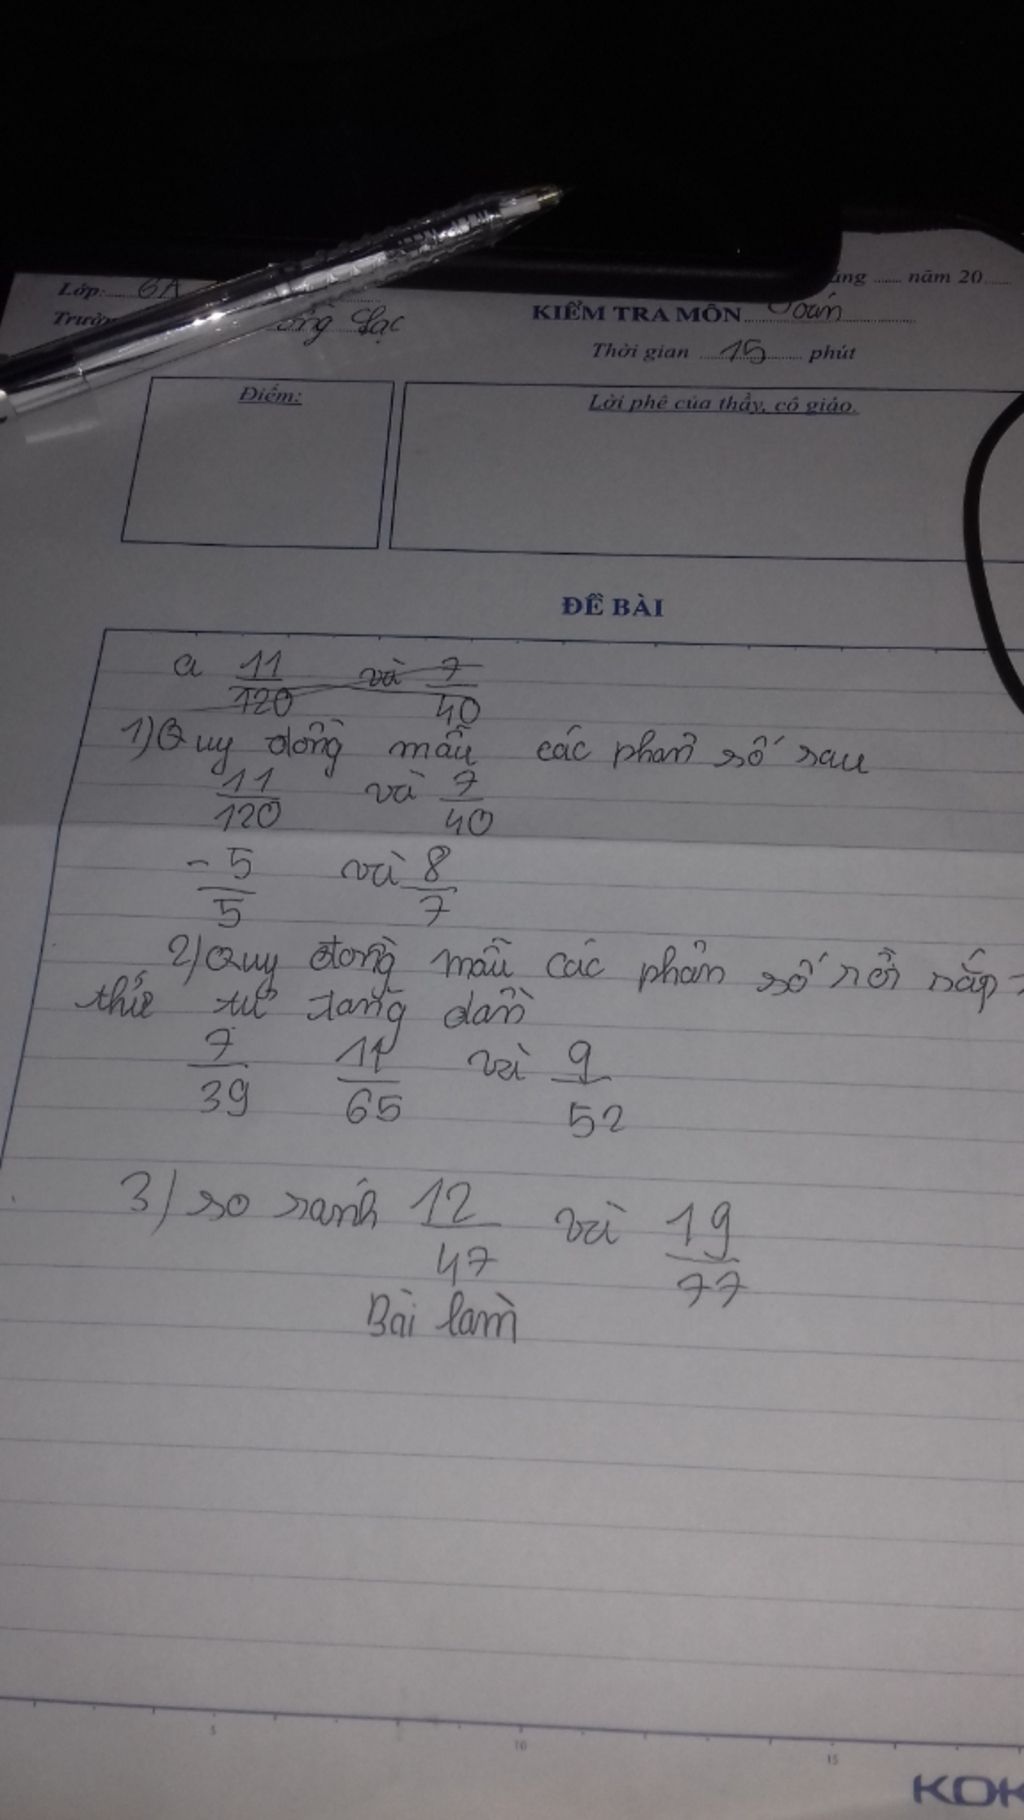 Lớp: 6A
ang ...... năm 20......
Trườn ông Lạc
KIỂM TRA MÔN Toán
Thời gian 15 phút
Điểm:
Lời phê của thầy, cô giáo.
ĐỀ BÀI
a 11/120 và 7/40
1) Quy đồng mẫu các phân số sau
11/120 và 7/40
-5/5 và 8/7
2) Quy đồng mẫu các phân số rồi sắp
thứ tự tăng dần
7/39 11/65 và 9/52
3) so sánh 12/47 và 19/77
Bài làm
5 10 15
KOK